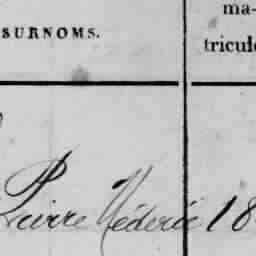 SURNOMS.
ma-
tricule
Pierre Néderic 18